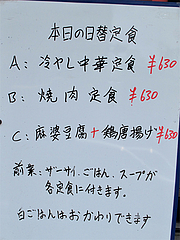 本日の日替定食
A: 冷やし中華定食 ¥630
B: 焼肉定食 ¥630
C: 麻婆豆腐+鶏唐揚げ ¥630
前菜: ザーサイ、ごはん、スープが
各定食に付きます。
白ごはんはおかわりできます